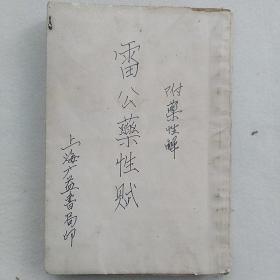 附藥性解
雷公藥性賦
上海广益書局印